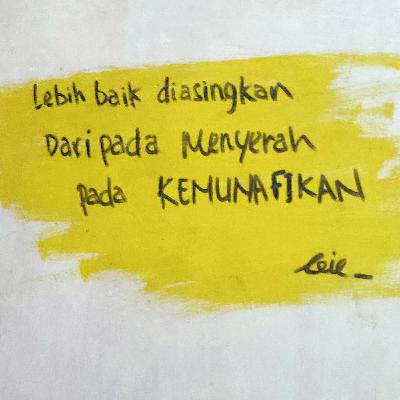 Lebih baik diasingkan
Dari pada Menyerah
pada KEMUNAFIKAN